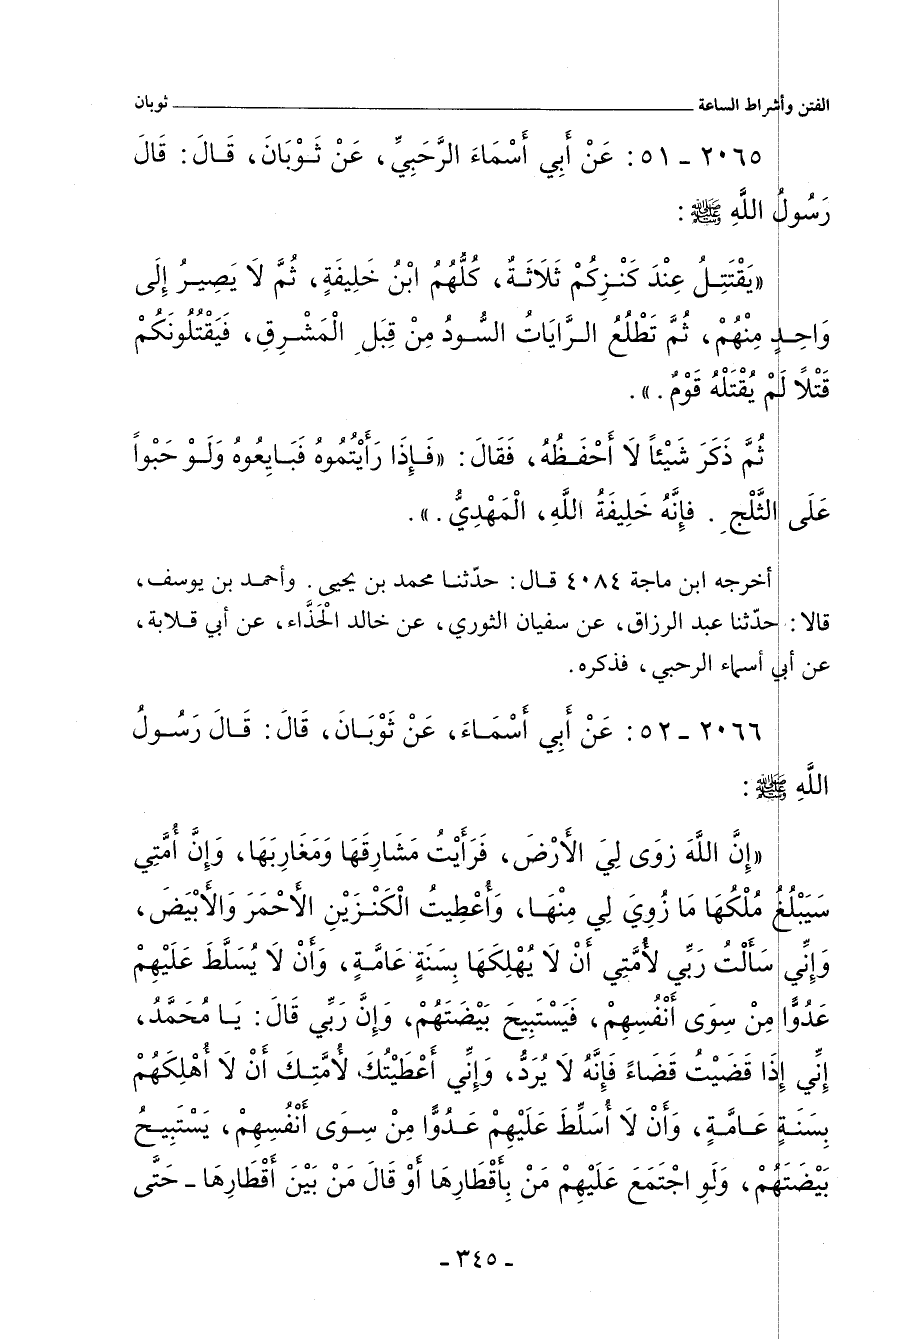 الفتن وأشراط الساعة ثوبان
٢٠٦٥ - ٥١: عَنْ أَبِي أَسْمَاءَ الرَّحَبِيِّ، عَنْ ثَوْبَانَ، قَالَ: قَالَ
رَسُولُ اللَّهِ ﷺ:
«يَقْتَتِلُ عِنْدَ كَنْزِكُمْ ثَلَاثَةٌ، كُلُّهُمُ ابْنُ خَلِيفَةٍ، ثُمَّ لَا يَصِيرُ إِلَى
وَاحِدٍ مِنْهُمْ، ثُمَّ تَطْلُعُ الرَّايَاتُ السُّودُ مِنْ قِبَلِ الْمَشْرِقِ، فَيَقْتُلُونَكُمْ
قَتْلًا لَمْ يُقْتَلْهُ قَوْمٌ.».
ثُمَّ ذَكَرَ شَيْئاً لَا أَحْفَظُهُ، فَقَالَ: «فَإِذَا رَأَيْتُمُوهُ فَبَايِعُوهُ وَلَوْ حَبْواً
عَلَى الثَّلْجِ. فإِنَّهُ خَلِيفَةُ اللَّهِ، الْمَهْدِيُّ.».
أخرجه ابن ماجة ٤٠٨٤ قال: حدّثنا محمد بن يحيى. وأحمد بن يوسف،
قالا: حدّثنا عبد الرزاق، عن سفيان الثوري، عن خالد الْحَذَّاء، عن أبي قلابة،
عن أبي أسماء الرحبي، فذكره.
٢٠٦٦ - ٥٢: عَنْ أَبِي أَسْمَاءَ، عَنْ ثَوْبَانَ، قَالَ: قَالَ رَسُولُ
اللَّهِ ﷺ:
«إِنَّ اللَّهَ زَوَى لِيَ الأَرْضَ، فَرَأَيْتُ مَشَارِقَهَا وَمَغَارِبَهَا، وَإِنَّ أُمَّتِي
سَيَبْلُغُ مُلْكُهَا مَا زُوِيَ لِي مِنْهَا، وَأُعْطِيتُ الْكَنْزَيْنِ الأَحْمَرَ وَالأَبْيَضَ،
وَإِنِّي سَأَلْتُ رَبِّي لأُمَّتِي أَنْ لَا يُهْلِكَهَا بِسَنَةٍ عَامَّةٍ، وَأَنْ لَا يُسَلِّطَ عَلَيْهِمْ
عَدُوًّا مِنْ سِوَى أَنْفُسِهِمْ، فَيَسْتَبِيحَ بَيْضَتَهُمْ، وَإِنَّ رَبِّي قَالَ: يَا مُحَمَّدُ،
إِنِّي إِذَا قَضَيْتُ قَضَاءً فَإِنَّهُ لَا يُرَدُّ، وَإِنِّي أَعْطَيْتُكَ لأُمَّتِكَ أَنْ لَا أُهْلِكَهُمْ
بِسَنَةٍ عَامَّةٍ، وَأَنْ لَا أُسَلِّطَ عَلَيْهِمْ عَدُوًّا مِنْ سِوَى أَنْفُسِهِمْ، يَسْتَبِيحُ
بَيْضَتَهُمْ، وَلَوِ اجْتَمَعَ عَلَيْهِمْ مَنْ بِأَقْطَارِهَا أَوْ قَالَ مَنْ بَيْنَ أَقْطَارِهَا - حَتَّى
- ٣٤٥ -